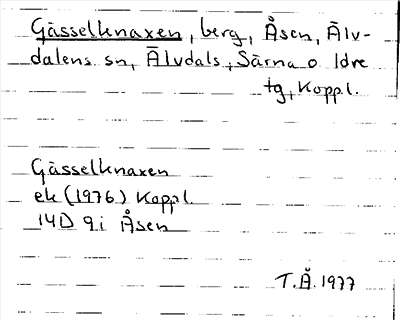 Gässelknaxen, berg, Åsen, Älv-
dalens sn, Älvdals, Särna o Idre
tg, Koppl.
Gässelknaxen
ek (1976) Koppl.
14D 9i Åsen
T.Å. 1977